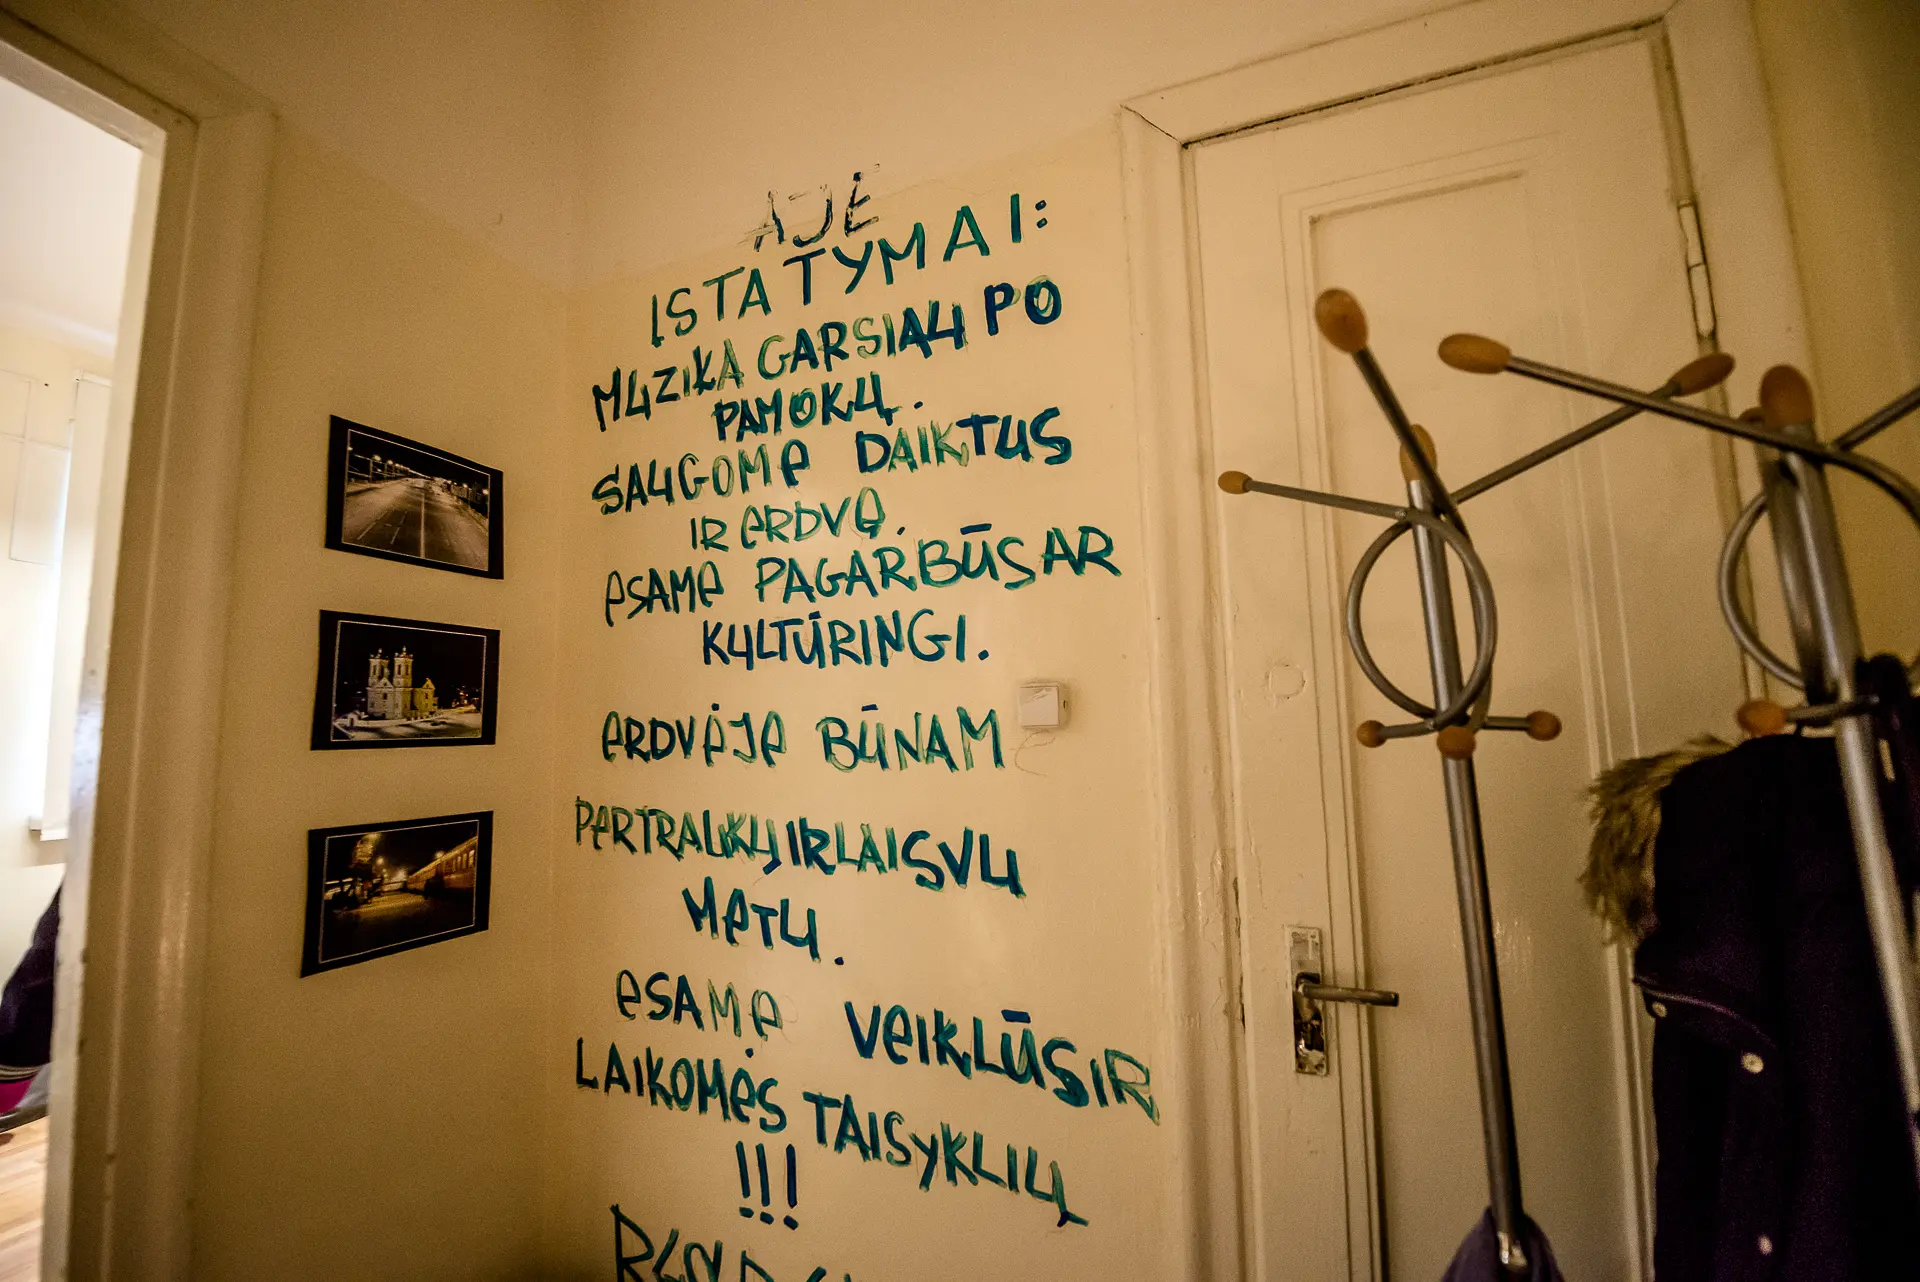 AJE
ĮSTATYMAI:
MUZIKA GARSIAU PO
PAMOKŲ.
SAUGOME DAIKTUS
IR ERDVĘ.
ESAME PAGARBŪS AR
KULTŪRINGI.
ERDVĖJE BŪNAM
PERTRAUKŲ IR LAISVU
METU.
ESAME VEIKLŪS IR
LAIKOMĖS TAISYKLIŲ
!!!